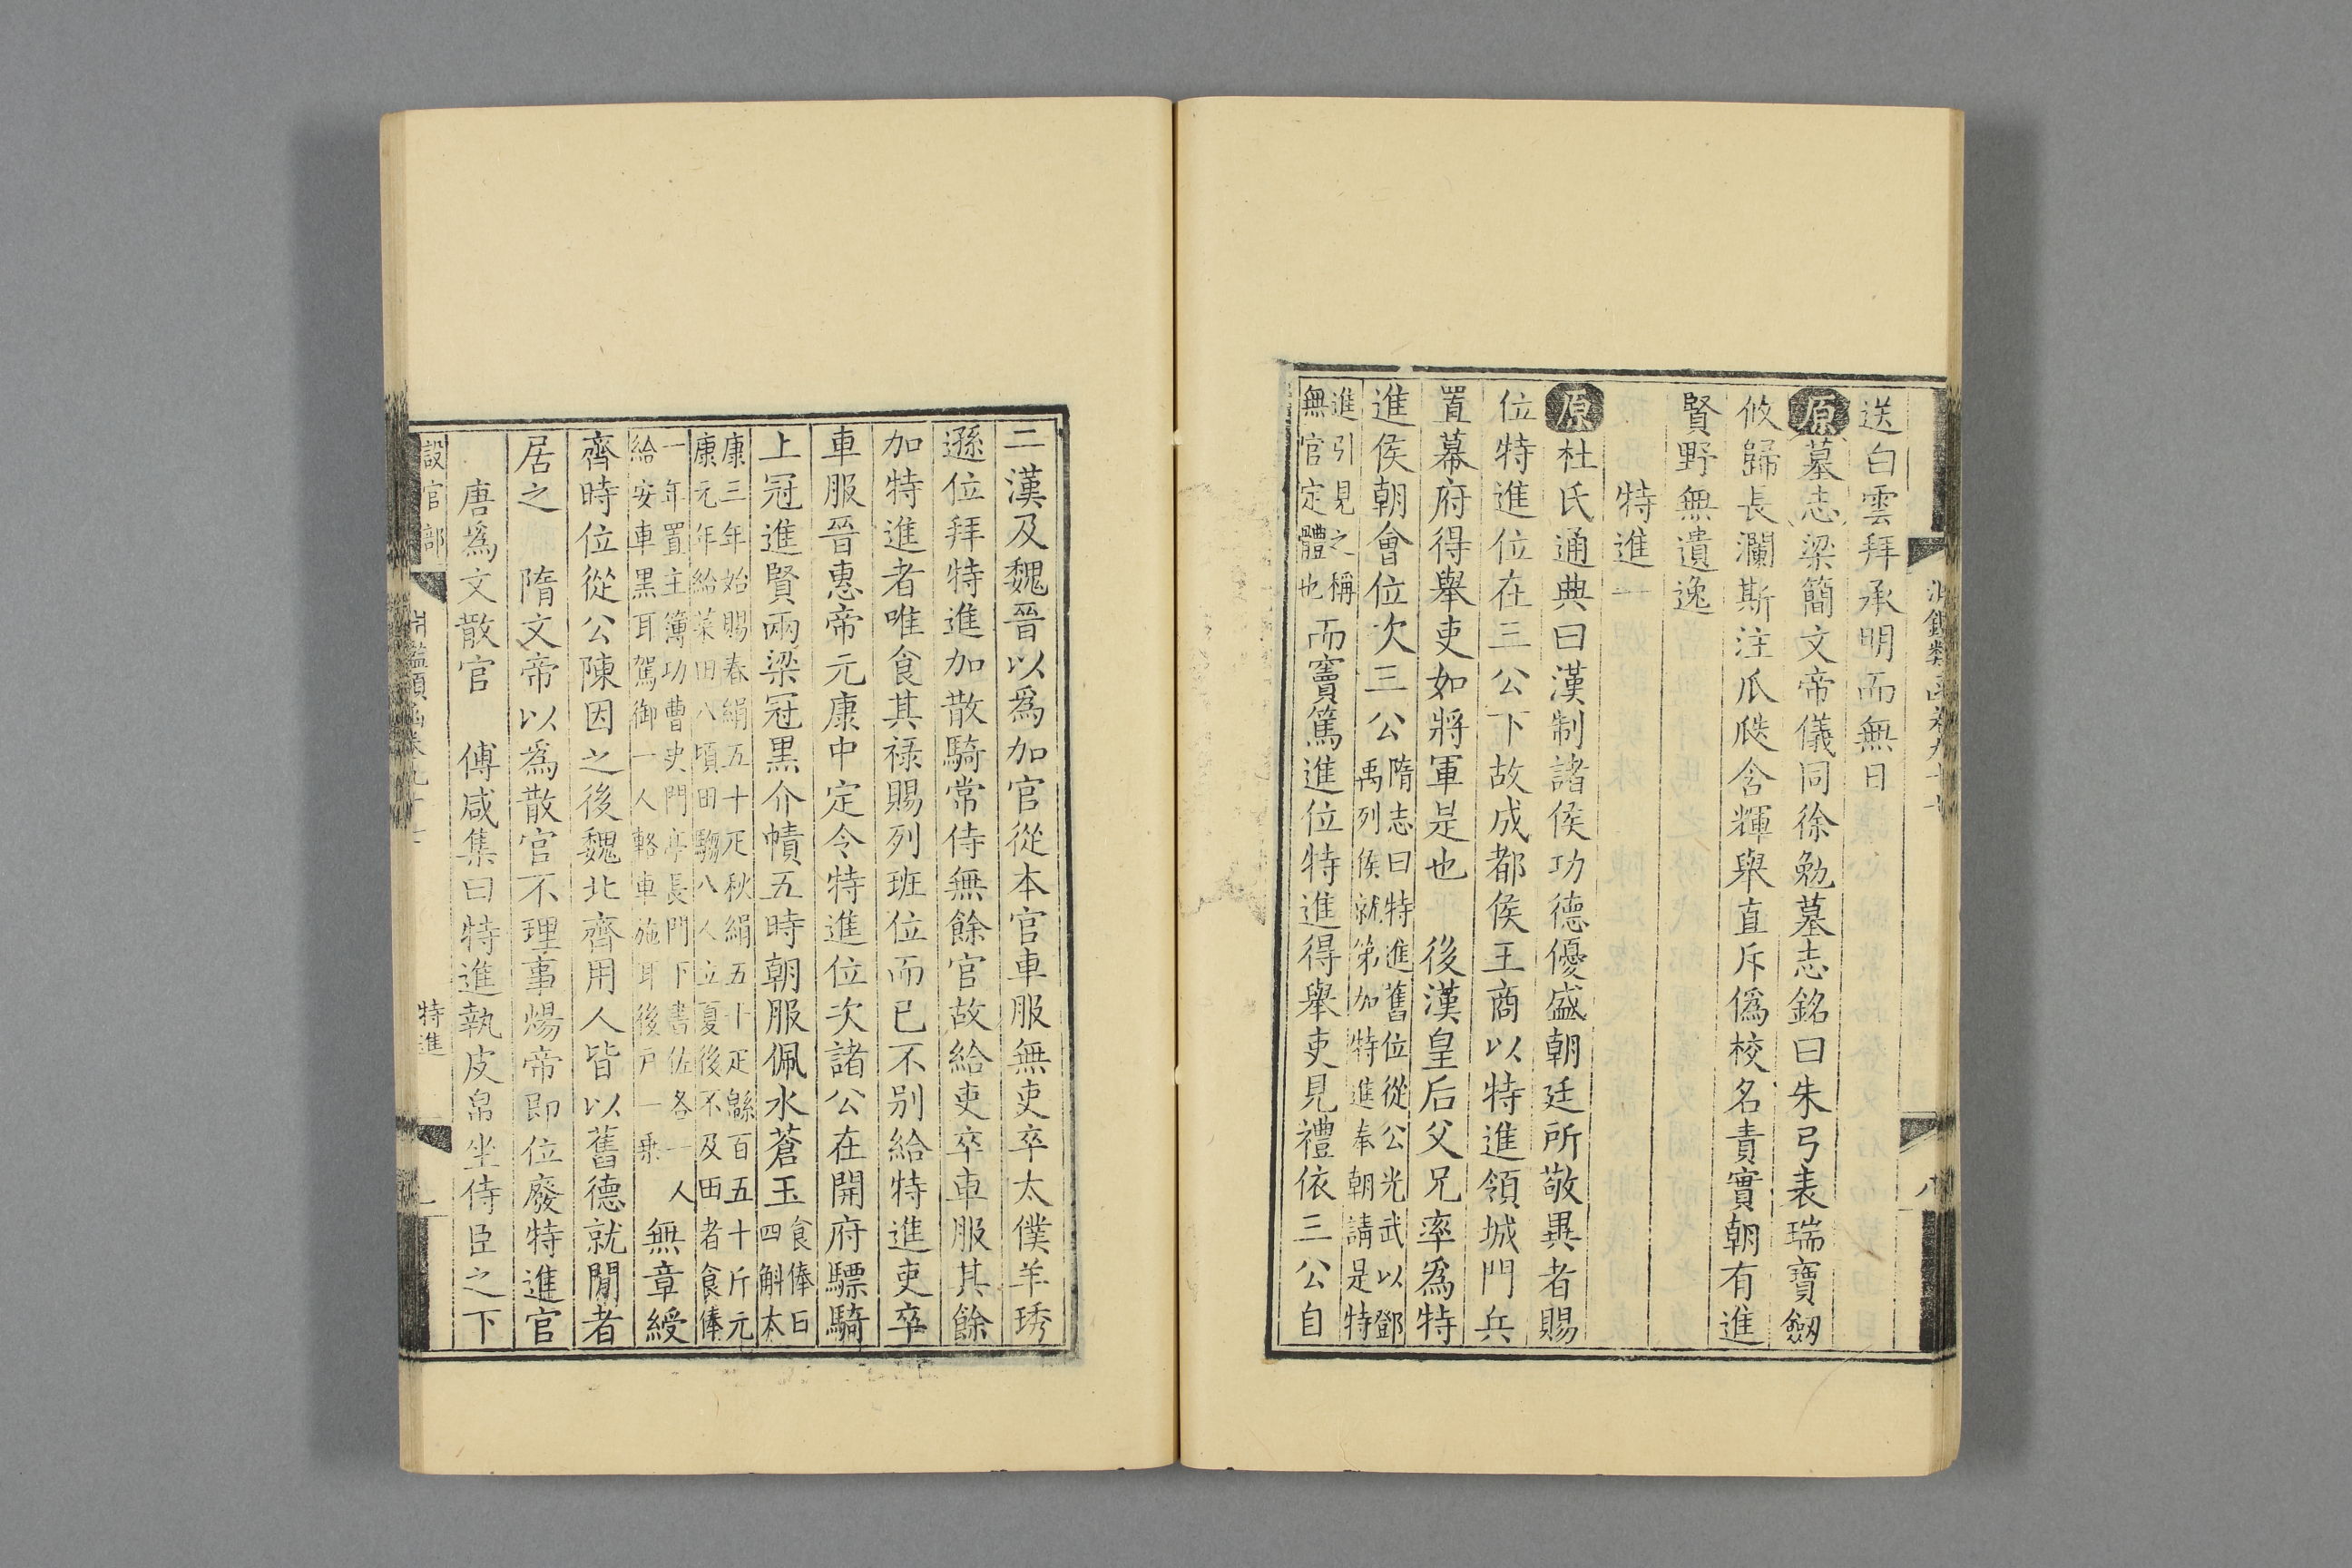 送白雲拜承明而無日
原墓志梁簡文帝儀同徐勉墓志銘曰朱弓表瑞寶劒
攸歸長瀾斯注爪瓞含輝舉直斥僞校名責實朝有進
賢野無遺逸
特進一
原杜氏通典曰漢制諸侯功德優盛朝廷所敬異者賜
位特進位在三公下故成都侯王商以特進領城門兵
置幕府得舉吏如將軍是也 後漢皇后父兄率爲特
進侯朝會位次三公隋志曰特進舊位從公光武以鄧禹列侯就第加特進奉朝請是特
進引見之稱無官定體也而竇篤進位特進得舉吏見禮依三公自
二漢及魏晉以爲加官從本官車服無吏卒太僕羊琇
遜位拜特進加散騎常侍無餘官故給吏卒車服其餘
加特進者唯食其祿賜列班位而已不别給特進吏卒
車服晉惠帝元康中定令特進位次諸公在開府驃騎
上冠進賢兩梁冠黑介幘五時朝服佩水蒼玉食俸日四斛太
康三年始賜春絹五十疋秋絹五十疋緜百五十斤元康元年給菜田八頃田騶八人立夏後不及田者食俸
一年置主簿功曹史門亭長門下書佐各一人給安車黑耳駕御一人軺車施耳後戶一乗無章綬
齊時位從公陳因之後魏北齊用人皆以舊德就閒者
居之 隋文帝以爲散官不理事煬帝即位廢特進官
唐爲文散官 傅咸集曰特進執皮帛坐侍臣之下
設官部
淵鑑類函卷九十七
特進